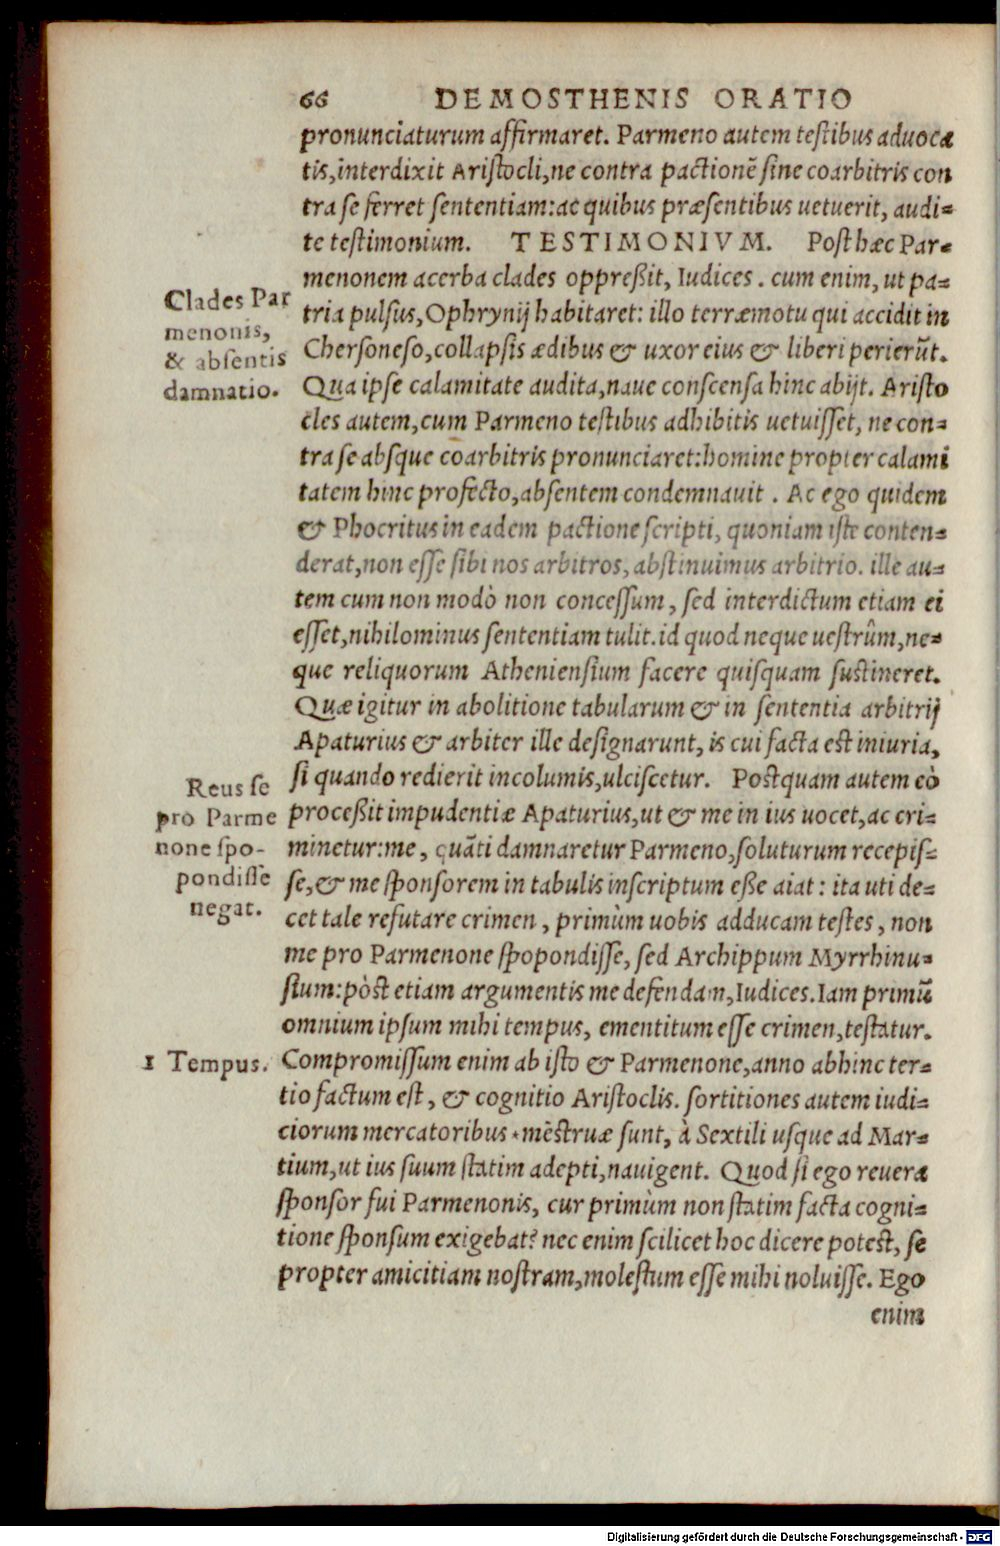 66 DEMOSTHENIS ORATIO
pronunciaturum affirmaret. Parmeno autem testibus aduoca
tis, interdixit Aristocli, ne contra pactionē sine coarbitris con
tra se ferret sententiam: ac quibus præsentibus uetuerit, audi=
te testimonium. TESTIMONIVM. Post hæc Par=
menonem acerba clades oppreßit, Iudices. cum enim, ut pa=
tria pulsus, Ophrynij habitaret: illo terræmotu qui accidit in
Chersoneso, collapsis ædibus & uxor eius & liberi perierūt.
Qua ipse calamitate audita, naue conscensa hinc abijt. Aristo
cles autem, cum Parmeno testibus adhibitis uetuisset, ne con=
tra se absque coarbitris pronunciaret: homine propter calami
tatem hinc profecto, absentem condemnauit. Ac ego quidem
& Phocritus in eadem pactione scripti, quoniam iste conten=
derat, non esse sibi nos arbitros, abstinuimus arbitrio. ille au=
tem cum non modò non concessum, sed interdictum etiam ei
esset, nihilominus sententiam tulit. id quod neque uestrûm, ne=
que reliquorum Atheniensium facere quisquam sustineret.
Quæ igitur in abolitione tabularum & in sententia arbitrij
Apaturius & arbiter ille designarunt, is cui facta est iniuria,
si quando redierit incolumis, ulciscetur. Postquam autem eò
proceßit impudentiæ Apaturius, ut & me in ius uocet, ac cri=
minetur: me, quāti damnaretur Parmeno, soluturum recepis=
se, & me sponsorem in tabulis inscriptum eße aiat: ita uti de=
cet tale refutare crimen, primùm uobis adducam testes, non
me pro Parmenone spopondisse, sed Archippum Myrrhinu=
sium: pòst etiam argumentis me defendam, Iudices. Iam primū
omnium ipsum mihi tempus, ementitum esse crimen, testatur.
Compromissum enim ab isto & Parmenone, anno abhinc ter=
tio factum est, & cognitio Aristoclis. sortitiones autem iudi=
ciorum mercatoribus *mēstruæ sunt, à Sextili usque ad Mar=
tium, ut ius suum statim adepti, nauigent. Quod si ego reuera
sponsor fui Parmenonis, cur primùm non statim facta cogni=
tione sponsum exigebat? nec enim scilicet hoc dicere potest, se
propter amicitiam nostram, molestum esse mihi noluisse. Ego
enim
Clades Par
menonis,
& absentis
damnatio.
Reus se
pro Parme
none spo-
pondisse
negat.
1 Tempus.
Digitalisierung gefördert durch die Deutsche Forschungsgemeinschaft - DFG